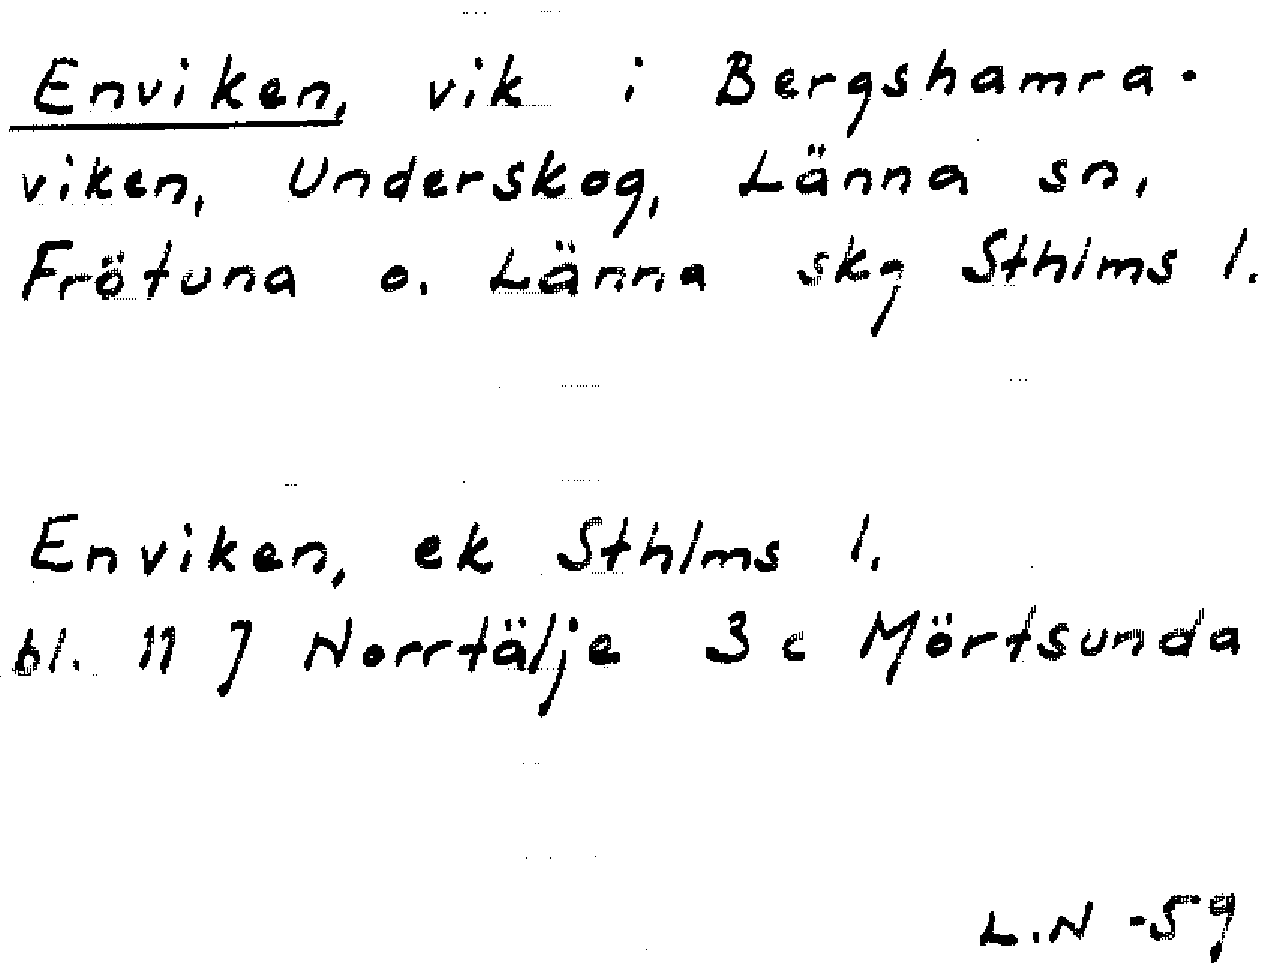 Enviken, vik i Bergshamra-
viken, Underskog, Länna sn,
Frötuna o. Länna skg Sthlms l.
Enviken, ek Sthlms l.
bl. 11 J Norrtälje 3 c Mörtsunda
L.N -59